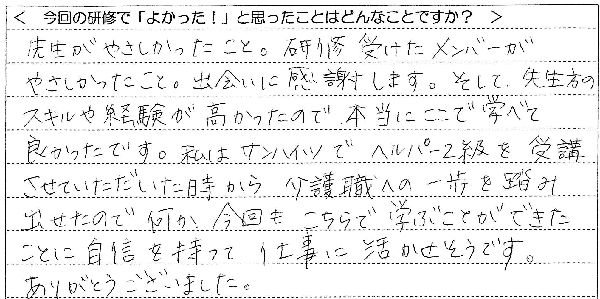 < 今回の研修で「よかった！」と思ったことはどんなことですか？ >
先生がやさしかったこと。研修受けたメンバーが
やさしかったこと。出会いに感謝します。そして、先生方の
スキルや経験が高かったので本当にここで学べて
良かったです。私はサンハイツでヘルパー2級を受講
させていただいた時から介護職への一歩を踏み
出せたので何か今回もこちらで学ぶことができた
ことに自信を持って仕事に活かせそうです。
ありがとうございました。